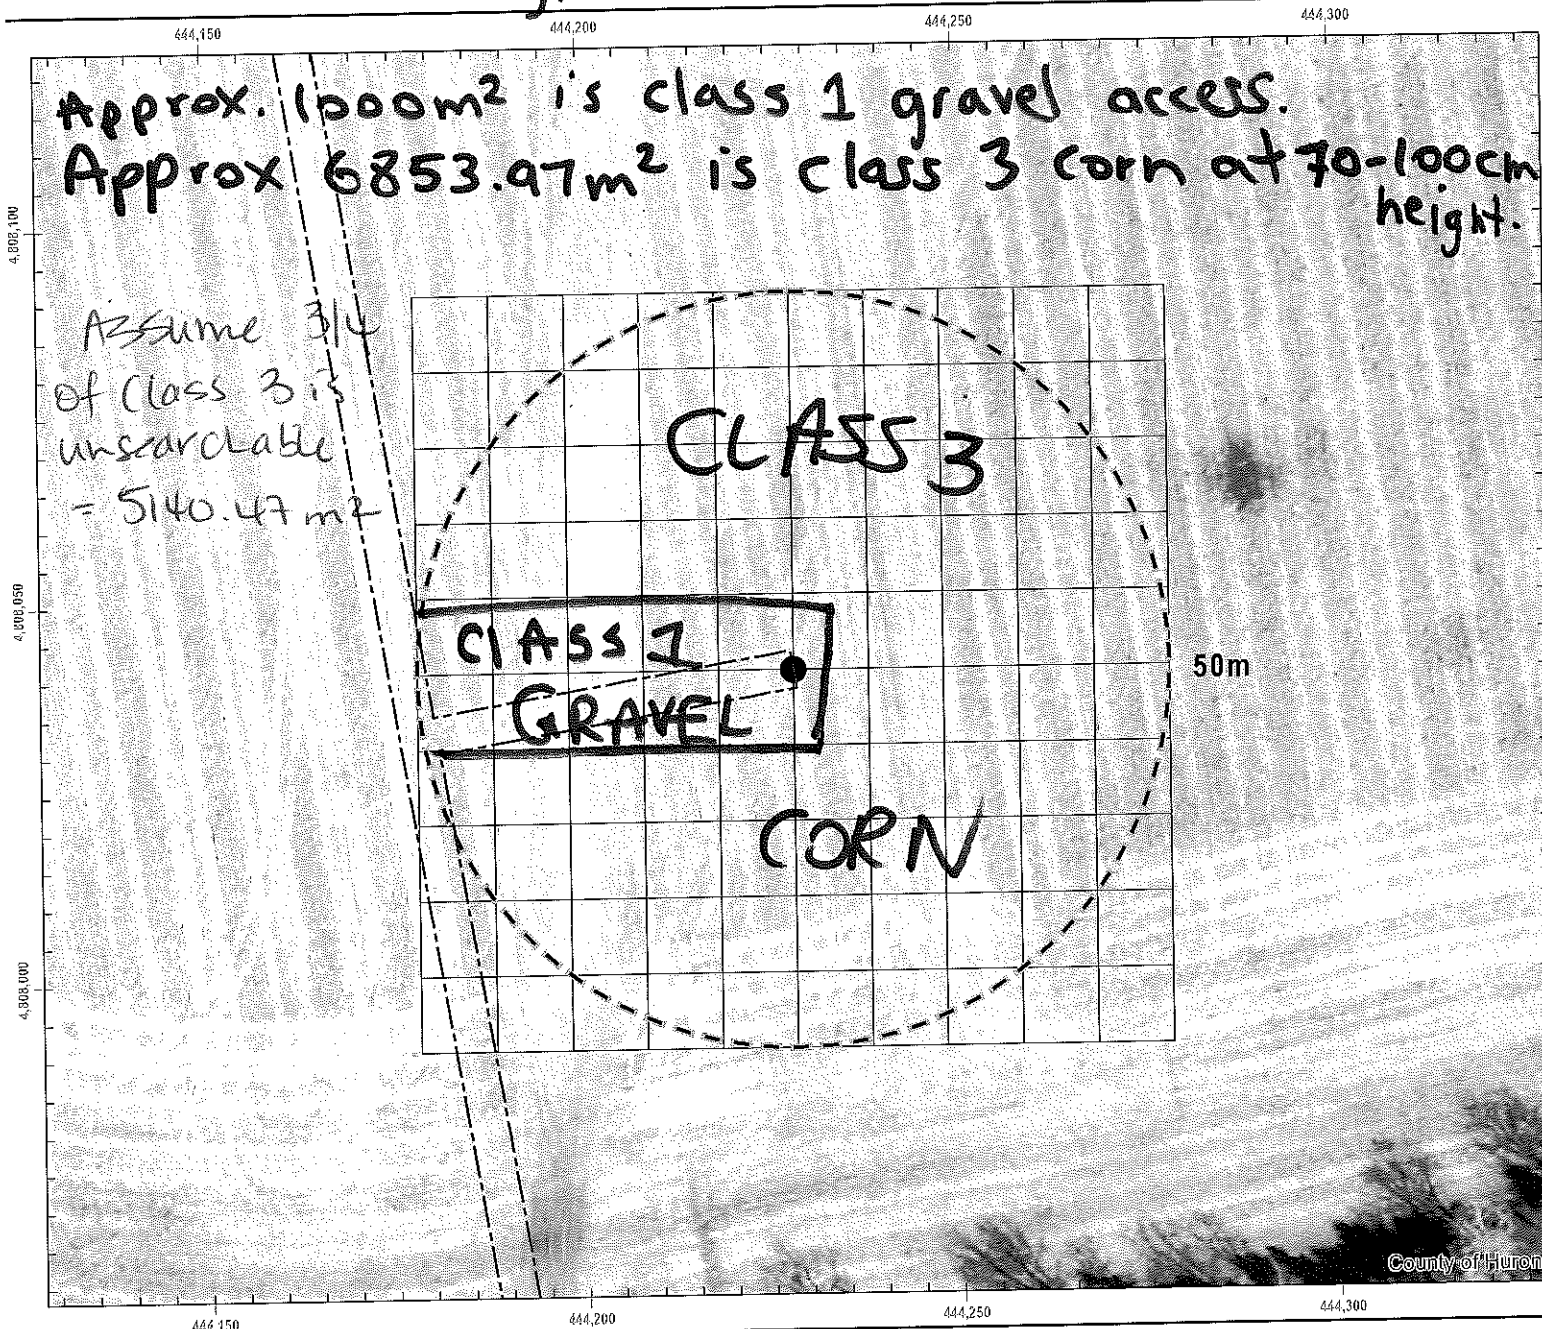 444,150 444,200 444,250 444,300
Approx. 1000m² is class 1 gravel access.
Approx 6853.97m² is class 3 corn at 70-100cm
height.
4,808,100
Assume 3/4
of Class 3 is
unsearchable
= 5140.47 m²
CLASS 3
4,808,050
CLASS 1
GRAVEL
50m
CORN
4,808,000
County of Huron
444,150 444,200 444,250 444,300